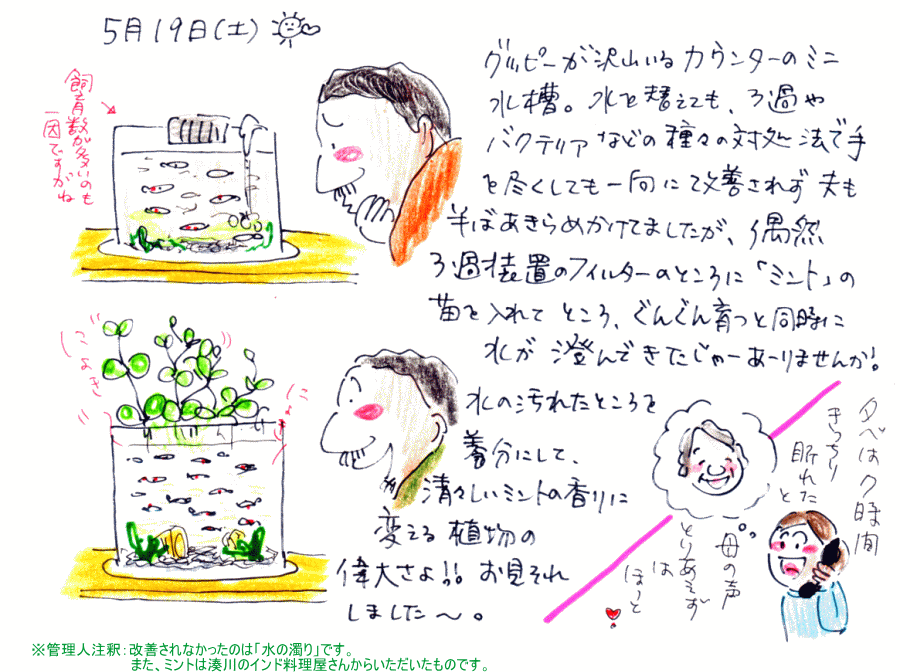 5月19日(土)
飼育数が多いのも
一因ですがね
グッピーが沢山いるカウンターのミニ
水槽。水を替えても、ろ過や
バクテリアなどの種々の対処法で手
を尽くしても一向に改善されず夫も
半ばあきらめかけてましたが、偶然
ろ過装置のフィルターのところに「ミント」の
苗を入れてところ、ぐんぐん育つと同時に
水が澄んできたじゃーあーりませんか!
水の汚れたところを
養分にして、
清々しいミントの香りに
変える植物の
偉大さよ!! お見それ
しました〜。
にょき
にょき
夕べは7時間
きっちり
眠れた
と
母の声
とりあえず
は
ほっと
※管理人注釈:改善されなかったのは「水の濁り」です。
また、ミントは湊川のインド料理屋さんからいただいたものです。